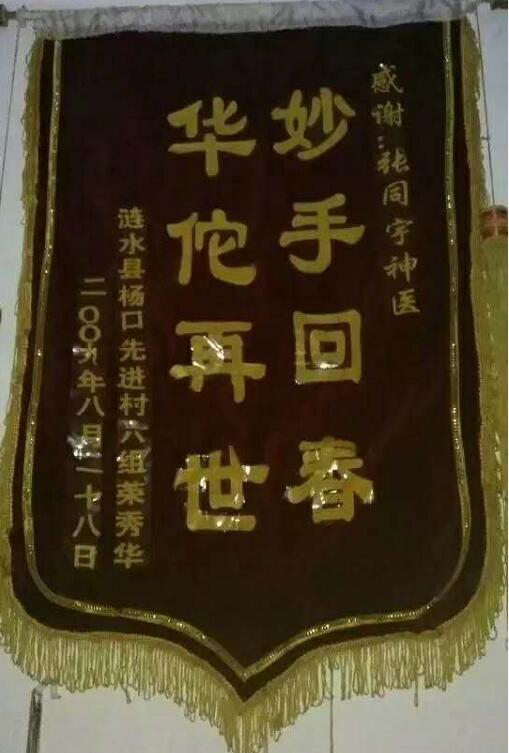 感谢:张同宇神医
妙手回春
华佗再世
涟水县杨口先进村六组荣秀华
二〇〇九年八月二十八日